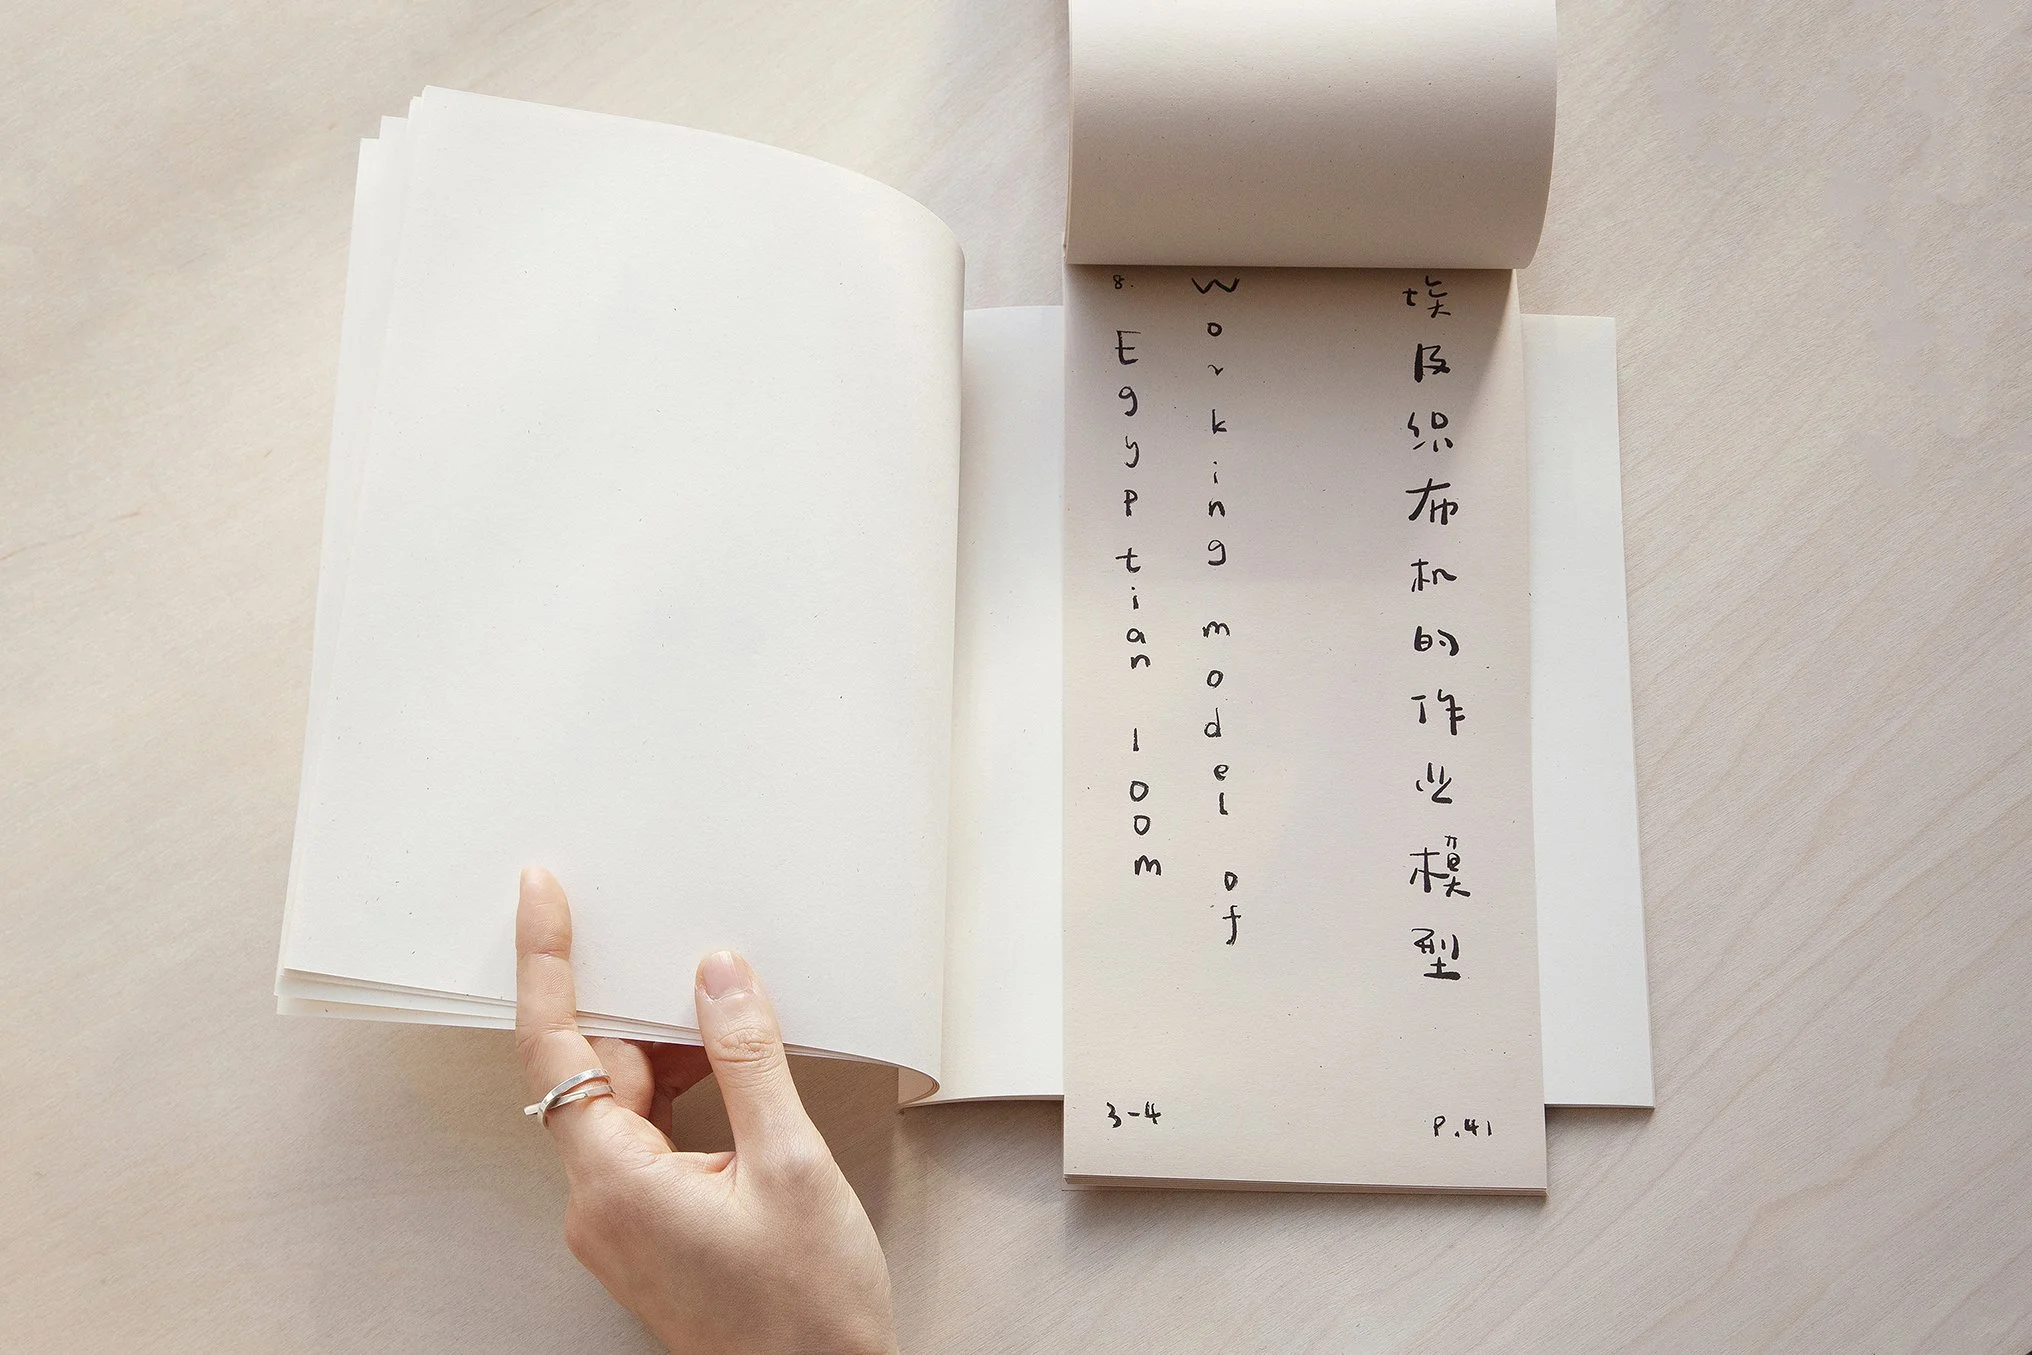 埃及织布机的作业模型
Working model of
8. Egyptian loom
3-4
P.41